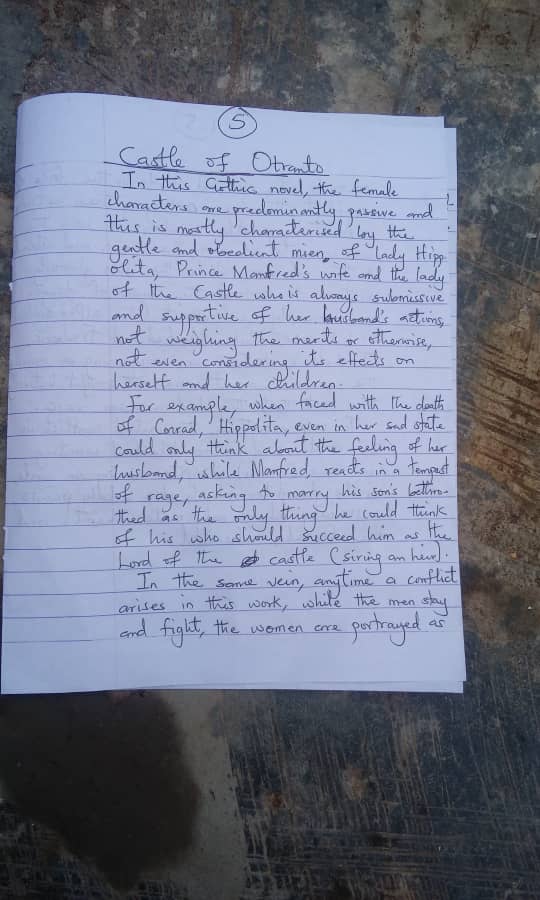 5
Castle of Otranto
In this Gothic novel, the female
characters are predominantly passive and
this is mostly characterised by the
gentle and obedient mien, of lady Hipp
olita, Prince Manfred's wife and the lady
of the Castle who is always submissive
and supportive of her husband's actions,
not weighing the merits or otherwise,
not even considering its effects on
herself and her children.
For example, when faced with the death
of Conrad, Hippolita, even in her sad state
could only think about the feeling of her
husband, while Manfred, reacts in a tempest
of rage, asking to marry his son's bethro-
thed as the only thing he could think
of his who should succeed him as the
Lord of the castle (siring an heir).
In the same vein, anytime a conflict
arises in this work, while the men stay
and fight, the women are portrayed as